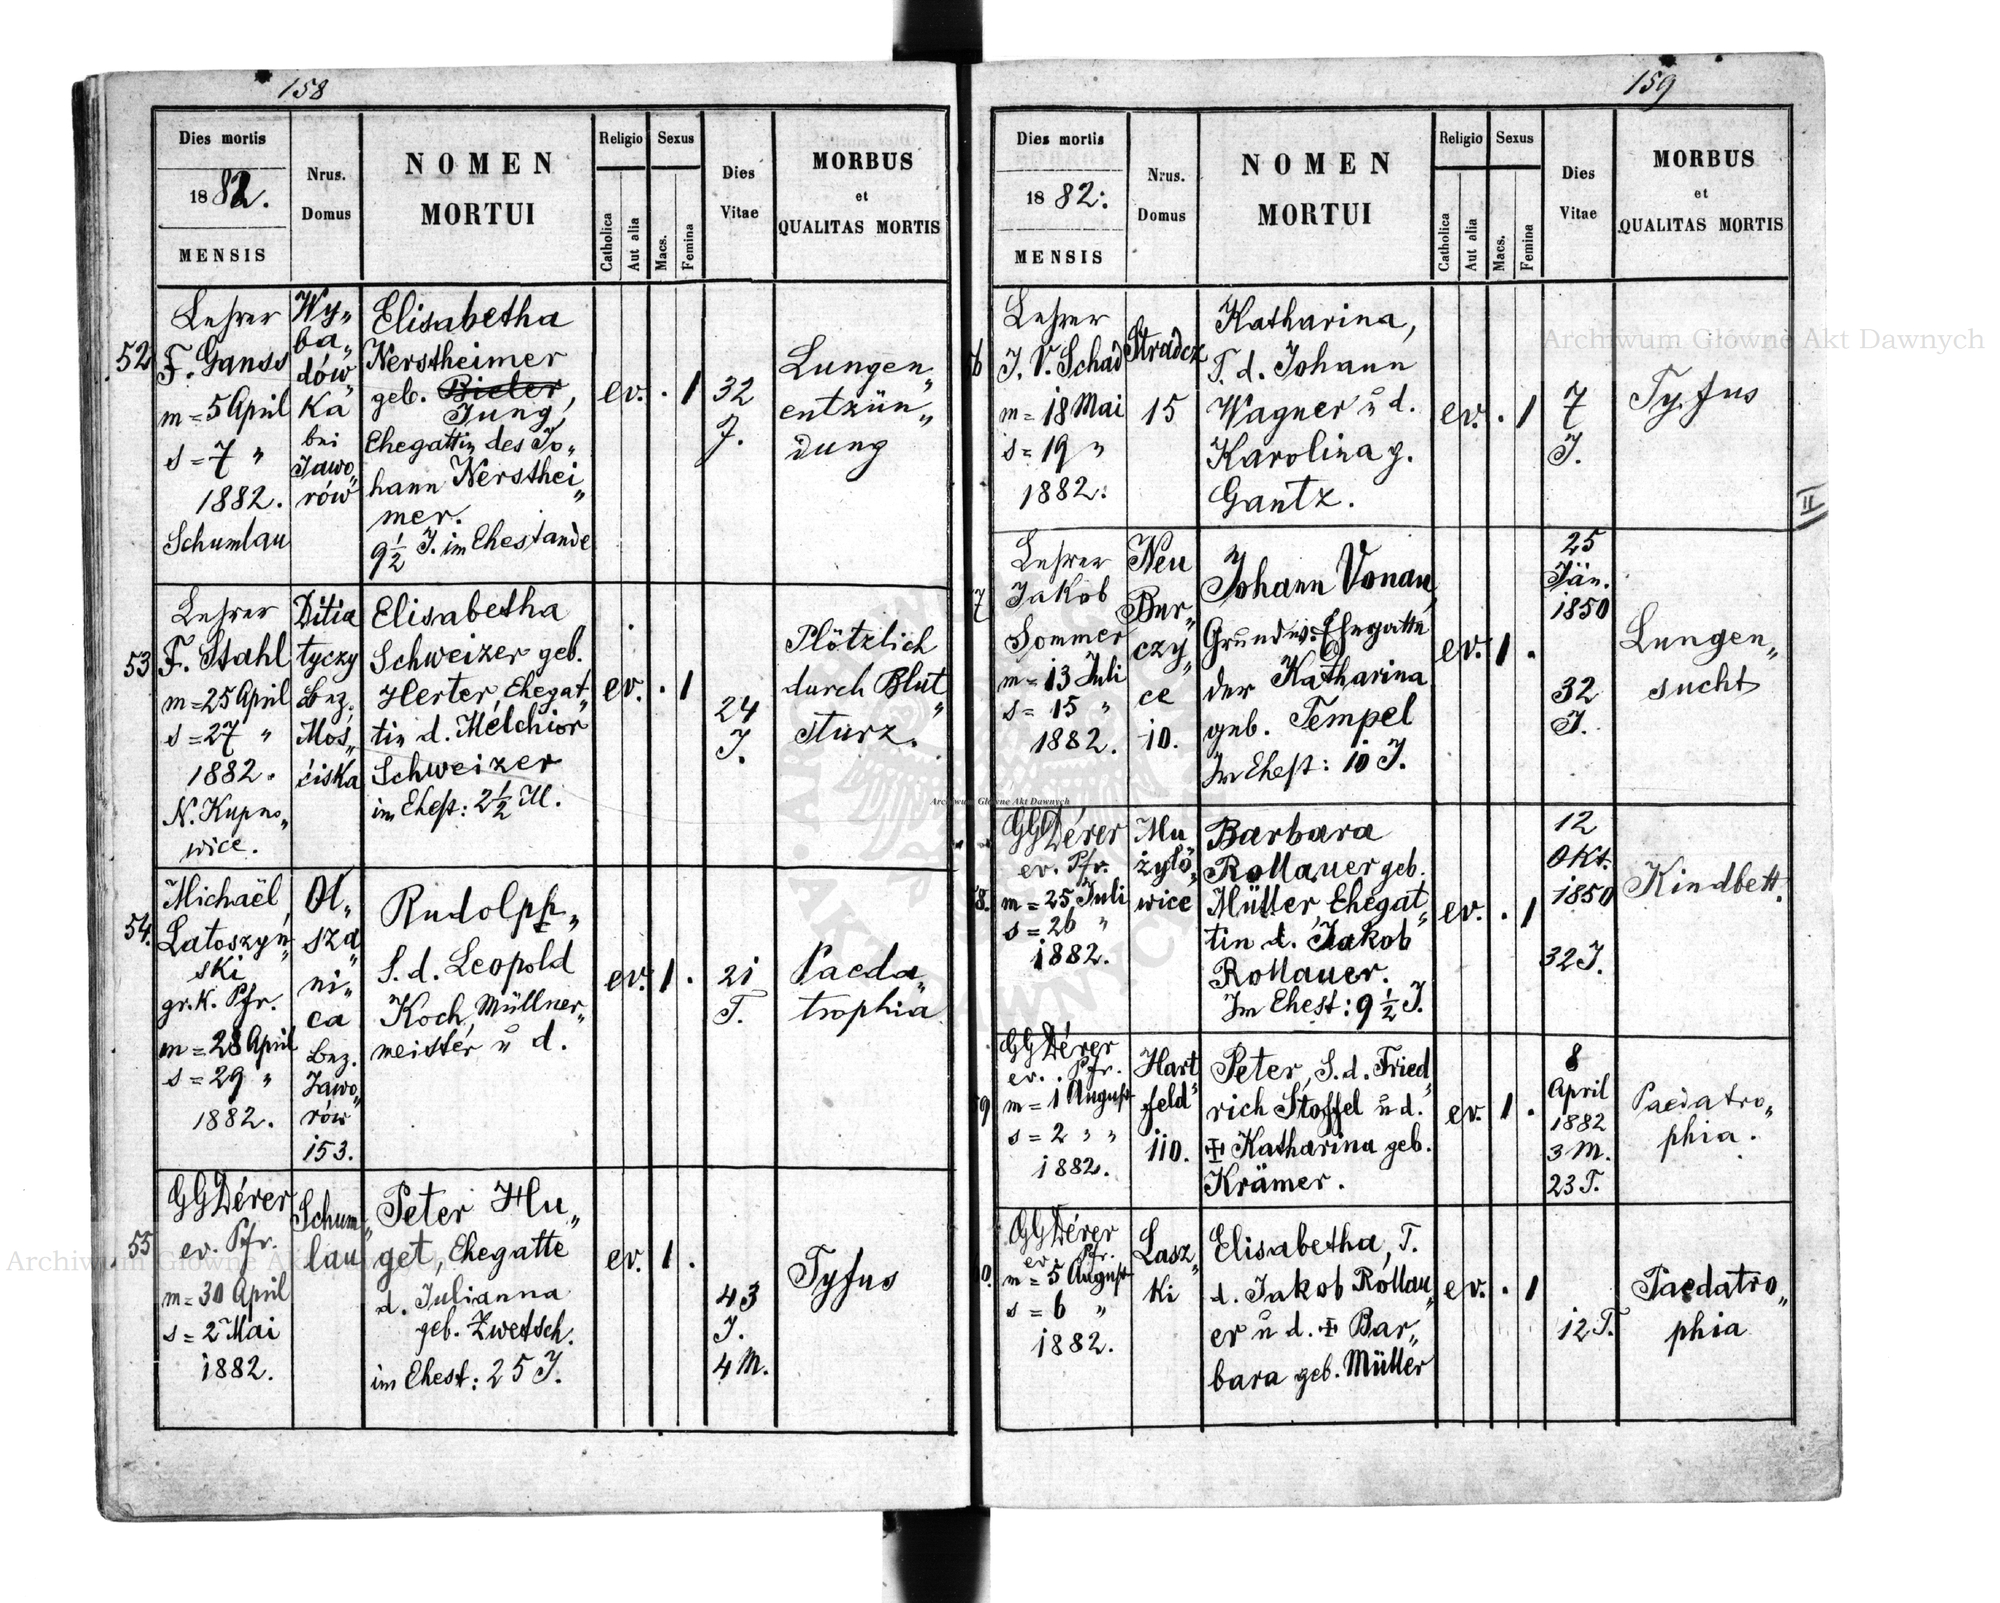 158
Dies mortis
1882.
MENSIS
Nrus.
Domus
NOMEN
MORTUI
Religio
Catholica
Aut alia
Sexus
Macs.
Femina
Dies
Vitae
MORBUS
et
QUALITAS MORTIS
52
Lehrer
F. Ganss
m = 5 April
s = 7 "
1882.
Schumlau
Wy„
ba„
dów„
ka
bei
Jawo„
rów
Elisabetha
Nerstheimer
geb. Bieler,
Jung,
Ehegattin des Jo„
hann Nersthei„
mer.
9½ J. im Ehestande
ev. . 1
32
J.
Lungen„
entzün„
dung
53
Lehrer
F. Stahl
m = 25 April
s = 27 "
1882.
N. Kupno„
wice.
Ditia
tyczy
Bez.
Mos„
ciska
Elisabetha
Schweizer geb.
Herter, Ehegat„
tin d. Melchior
Schweizer
im Ehest: 2½ M.
ev. . 1
24
J.
Plötzlich
durch Blut„
sturz.
54.
Michaël
Latoszyn„
ski
gr. k. Pfr.
m = 28 April
s = 29 "
1882.
Ol„
sza„
ni„
ca
Bez.
Jawo„
rów
153.
Rudolph„
S. d. Leopold
Koch, Müllner„
meister u d.
ev. 1 .
21
T.
Paeda„
trophia
55
GGDérer
ev. Pfr.
m = 30 April
s = 2 Mai
1882.
Schum„
lau
Peter Hu„
get, Ehegatte
d. Julianna
geb. Zwetsch.
im Ehest: 25 J.
ev. 1 .
43
J.
4 M.
Tyfus
159
Dies mortis
1882:
MENSIS
Nrus.
Domus
NOMEN
MORTUI
Religio
Catholica
Aut alia
Sexus
Macs.
Femina
Dies
Vitae
MORBUS
et
QUALITAS MORTIS
6
Lehrer
J. V. Schad
m = 18 Mai
s = 19 "
1882:
Stradcz
15
Katharina,
T. d. Johann
Wagner u d.
Karolina g.
Gantz.
ev. . 1
7
J.
Tyfus
II
7
Lehrer
Jakob
Sommer
m = 13 Juli
s = 15 "
1882.
Neu
Bur„
czy„
ce
10.
Johann Vonau,
Grundw. Ehegatte
der Katharina
geb. Tempel
Im Ehest: 10 J.
ev. 1 .
25
Jän.
1850
32
J.
Lungen„
sucht
8.
GGDérer
ev. Pfr.
m = 25 Juli
s = 26 "
1882.
Mu
żyło„
wice
Barbara
Rollauer geb.
Müller, Ehegat„
tin d. Jakob
Rollauer.
Im Ehest: 9½ J.
ev. . 1
12
Okt.
1850
32 J.
Kindbett.
9
GGDérer
ev. Pfr.
m = 1 August
s = 2 " "
1882.
Hart„
feld
110.
Peter, S. d. Fried„
rich Stoffel u d.
‡ Katharina geb.
Krämer.
ev. 1 .
8
April
1882
3 M.
23 T.
Paedatro„
phia.
0.
GGDérer
ev. Pfr.
m = 5 August
s = 6 "
1882.
Lasz„
ki
Elisabetha, T.
d. Jakob Rollau„
er u d. ‡ Bar„
bara geb. Müller
ev. . 1
12 T.
Paedatro„
phia
Archiwum Główne Akt Dawnych
Archiwum Główne Akt Dawnych
Archiwum Główne Akt Dawnych